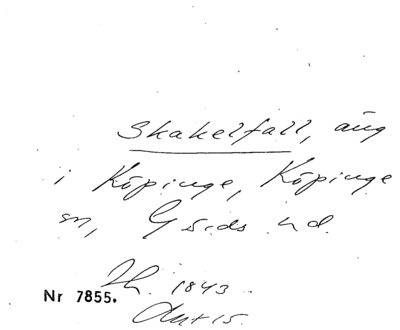 Skakelfall, äng
i Köpinge, Köpinge
sn, Gärds hd.
Lh. 1843
Nr 7855. Akt 15.